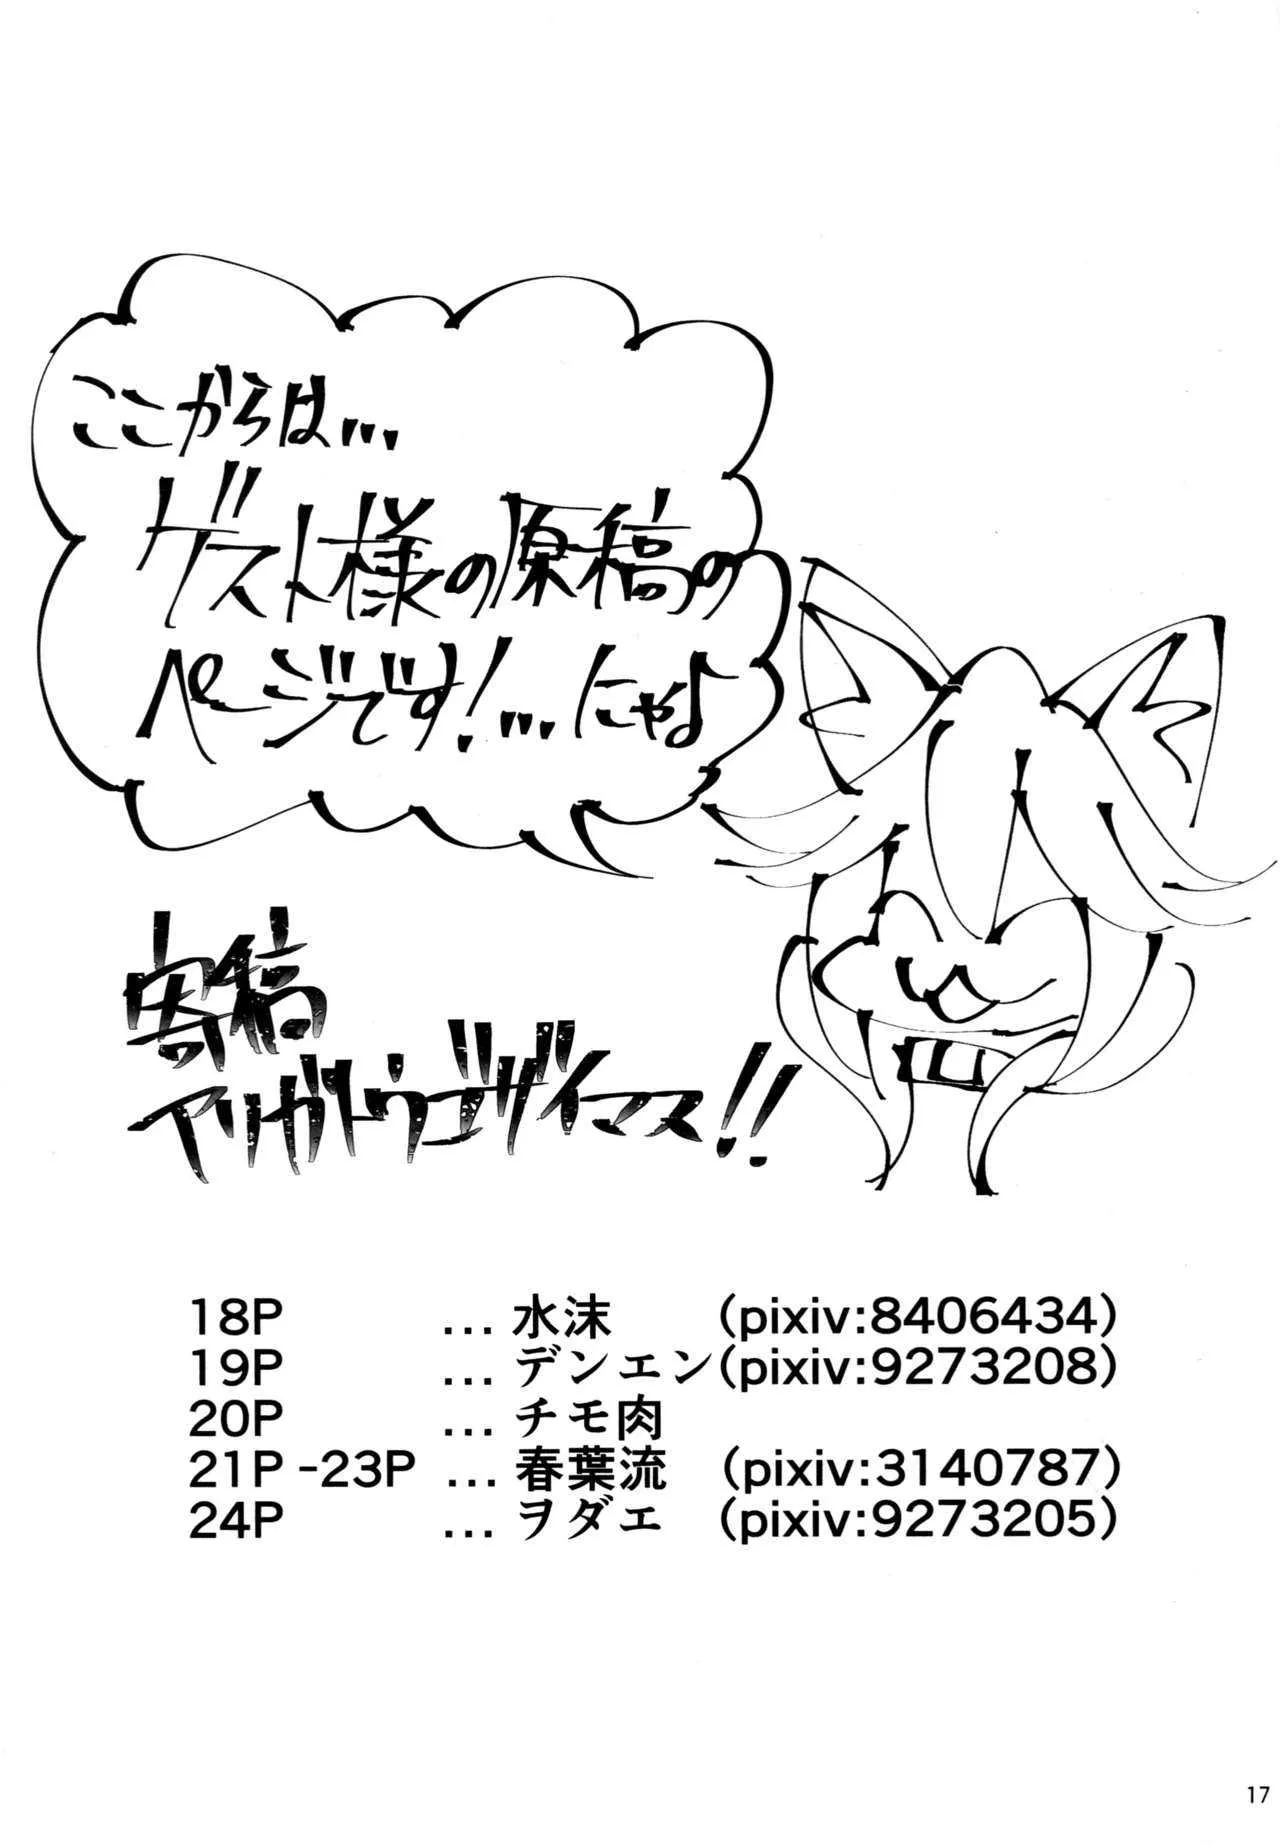 ここからは...
ゲスト様の原稿の
ページです!......にゃよ
寄稿
アリガトウゴザイマス!!
18P ... 水沫 (pixiv:8406434)
19P ... デンエン(pixiv:9273208)
20P ... チモ肉
21P -23P ... 春葉流 (pixiv:3140787)
24P ... ヲダエ (pixiv:9273205)
17